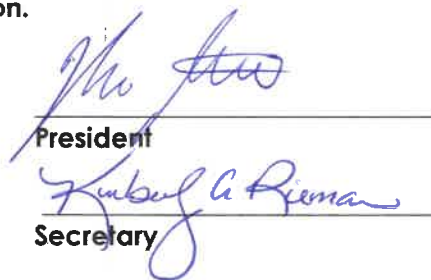 on.
President
Kimberly A Rieman
Secretary